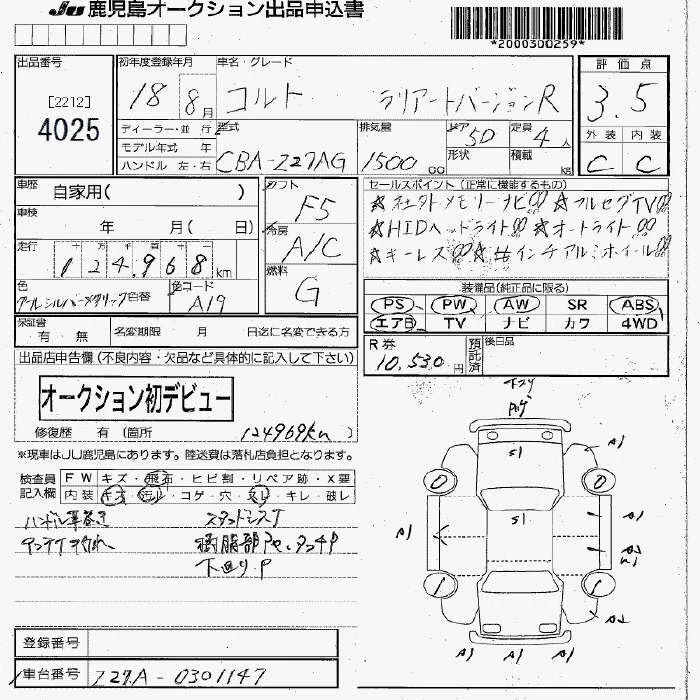 JU 鹿児島オークション出品申込書
*2000300259*
出品番号
[2212]
4025
初年度登録年月
18 8月
車名・グレード
コルト ラリアートバージョンR
評価点
3.5
外装 内装
C C
ディーラー・並 行
モデル年式 年
ハンドル 左・右
型式
CBA-Z27AG
排気量
1500 CC
ドア 5D
形状
定員 4 人
積載 kg
車歴 自家用( )
車検 年 月( 日)
走行 124,968 km
色
クールシルバーメタリック 色替
色コード
A19
シフト
F5
冷房
A/C
燃料
G
セールスポイント(正常に機能するもの)
☆社外メモリーナビ ☆フルセグTV
☆HIDヘッドライト ☆オートライト
☆キーレス ☆社外インチアルミホイール
装備品(純正品に限る)
PS PW AW SR ABS
エアB TV ナビ カワ 4WD
保証書
有 無
名変期限 月 日迄に名変できる方
R券
10,530円
預託済
後日品
出品店申告欄(不良内容・欠品など具体的に記入して下さい)
オークション初デビュー
修復歴 有 (箇所
124969km
※現車はJU鹿児島にあります。陸送費は落札店負担となります。
検査員
記入欄
FW キズ・飛石・ヒビ割・リペア跡・X要
内装 キズ・汚レ・コゲ・穴・スレ・キレ・破レ
下回りP
S1
S1
A1
A1
A1
A1
A1
A1
A1
0
0
1
1
登録番号
車台番号 Z27A-0301147